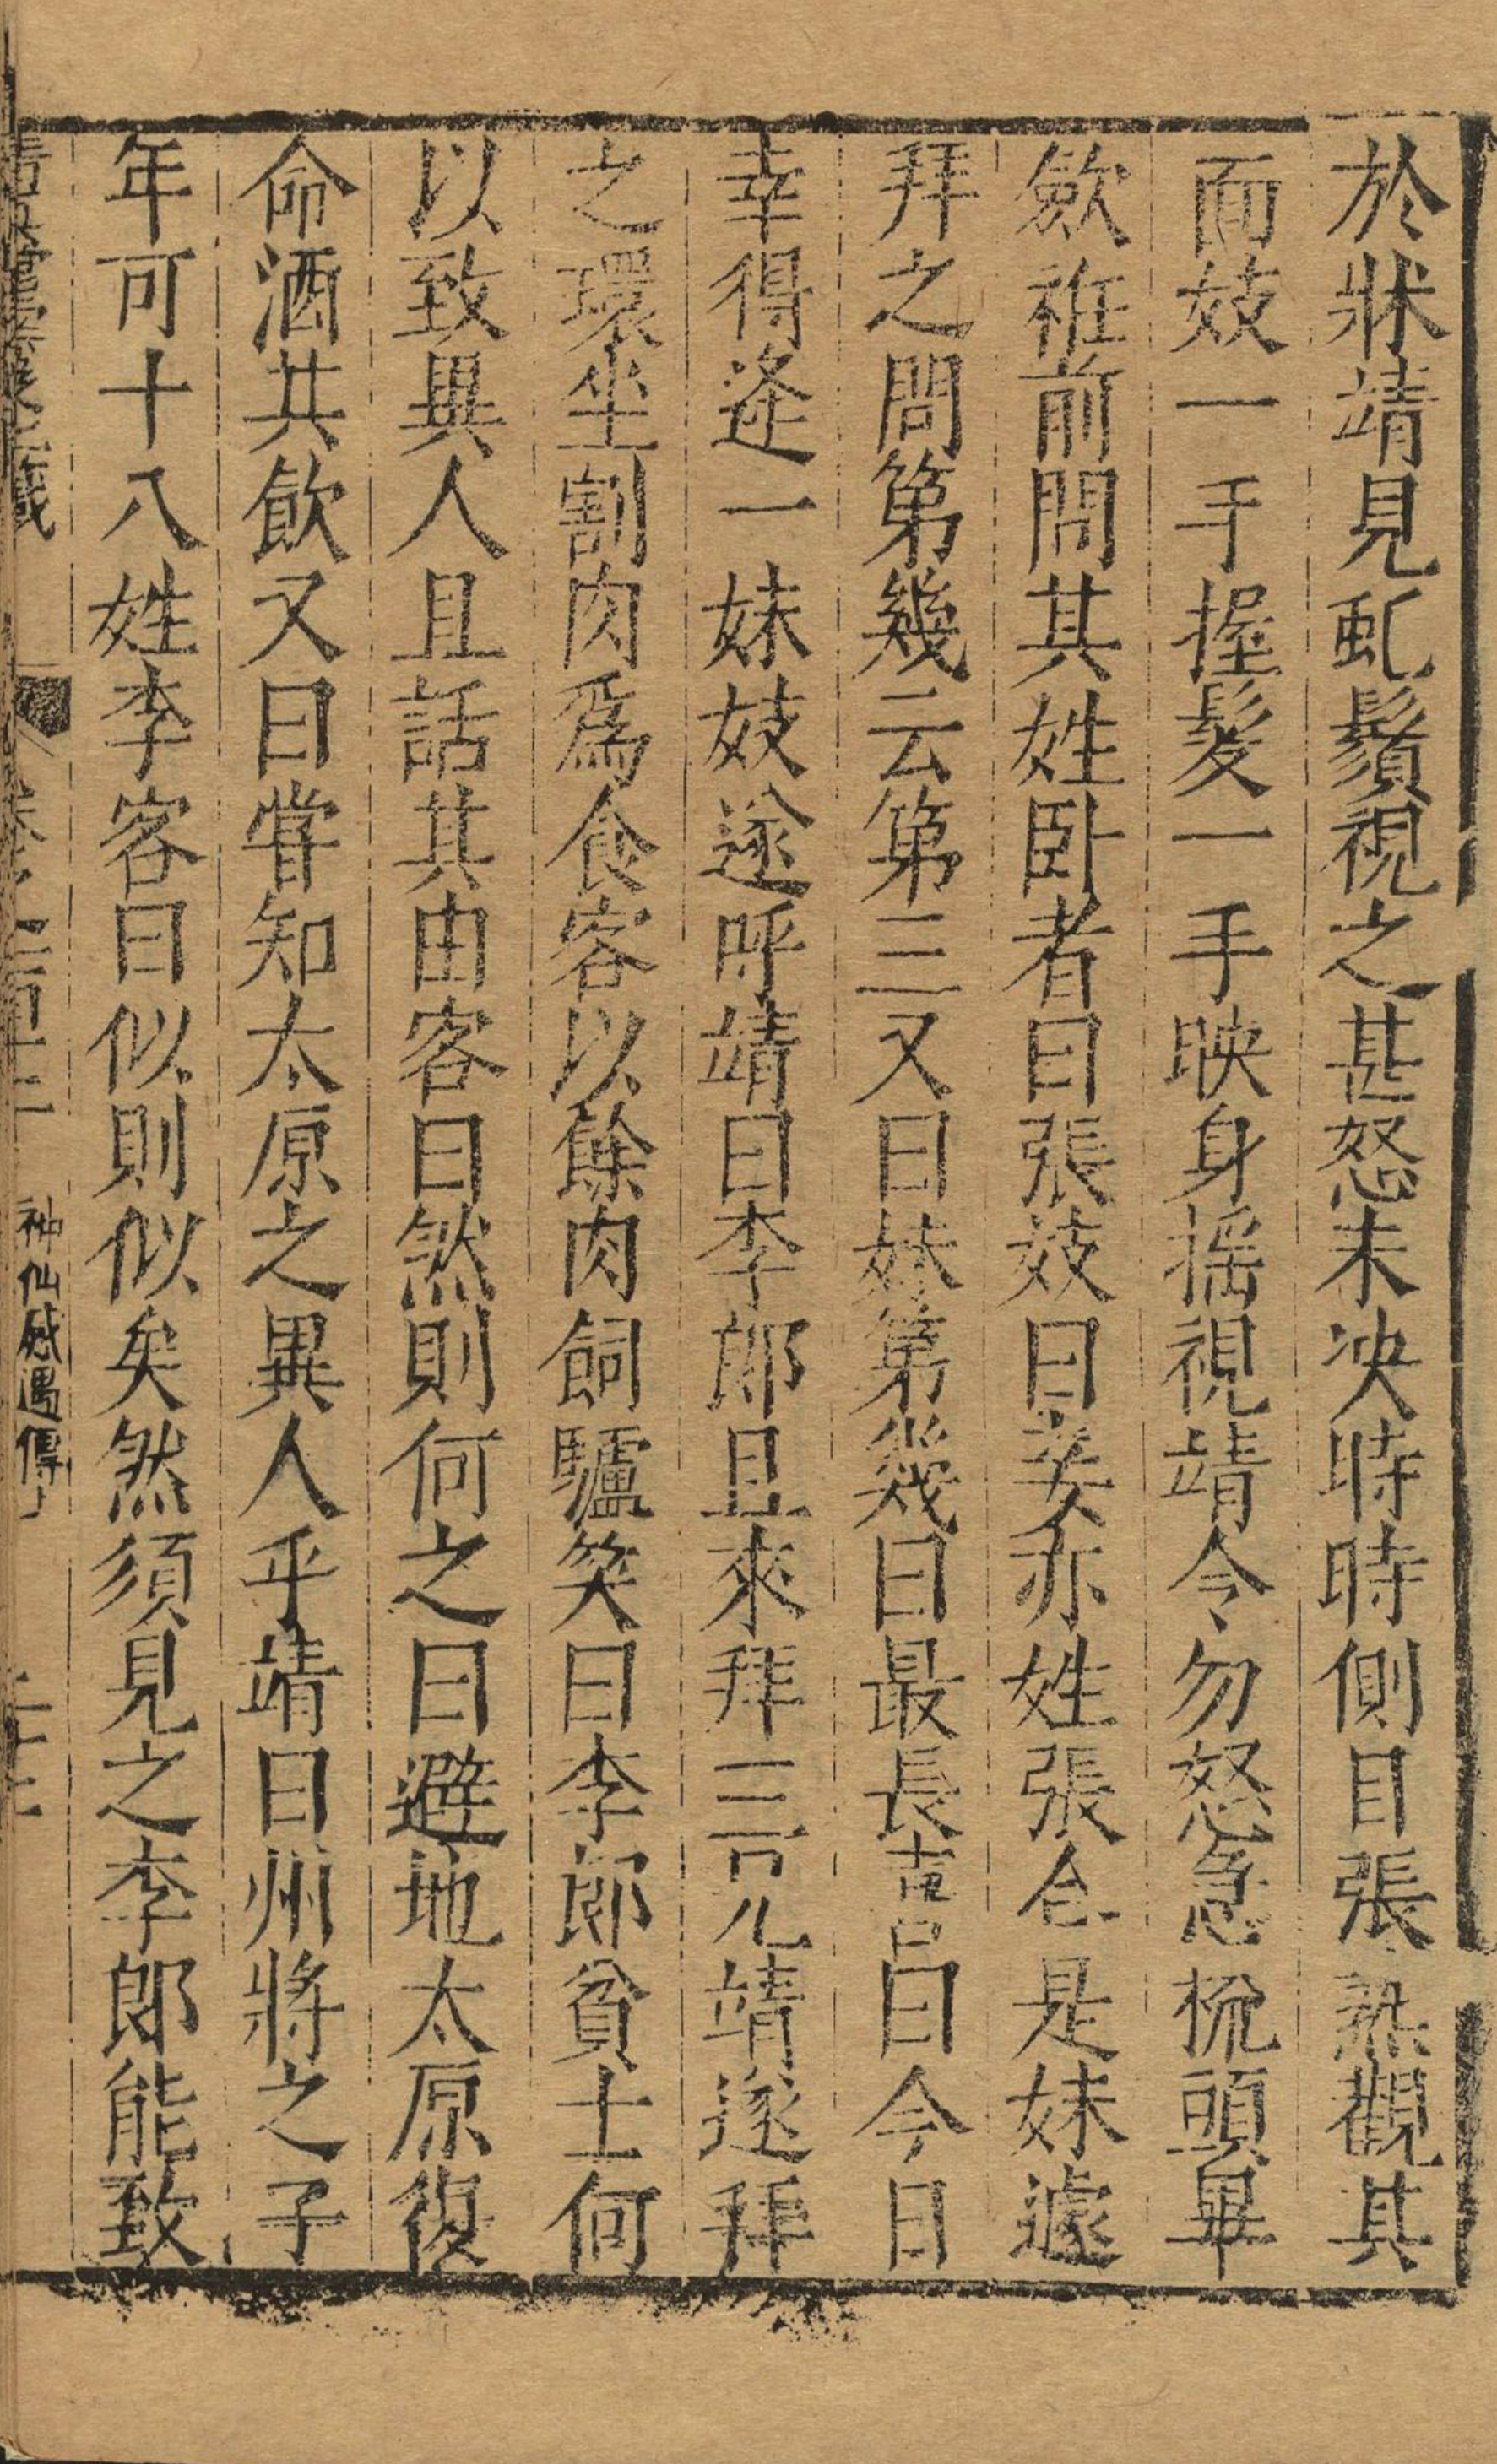 於牀靖見虬鬚視之甚怒未决時時側目張熟觀其
面妓一手握髮一手映身揺視靖令勿怒急梳頭畢
斂袵前問其姓卧者曰張妓曰妾亦姓張合是妹遽
拜之問第幾云第三又曰妹第幾曰最長喜曰今日
幸得逢一妹妓遂呼靖曰李郎且來拜三兄靖遂拜
之環坐割肉爲食客以餘肉飼驢笑曰李郎貧士何
以致異人且話其由客曰然則何之曰避地太原復
命酒共飲又曰嘗知太原之異人乎靖曰州將之子
年可十八姓李客曰似則似矣然須見之李郎能致
神仙感遇傳